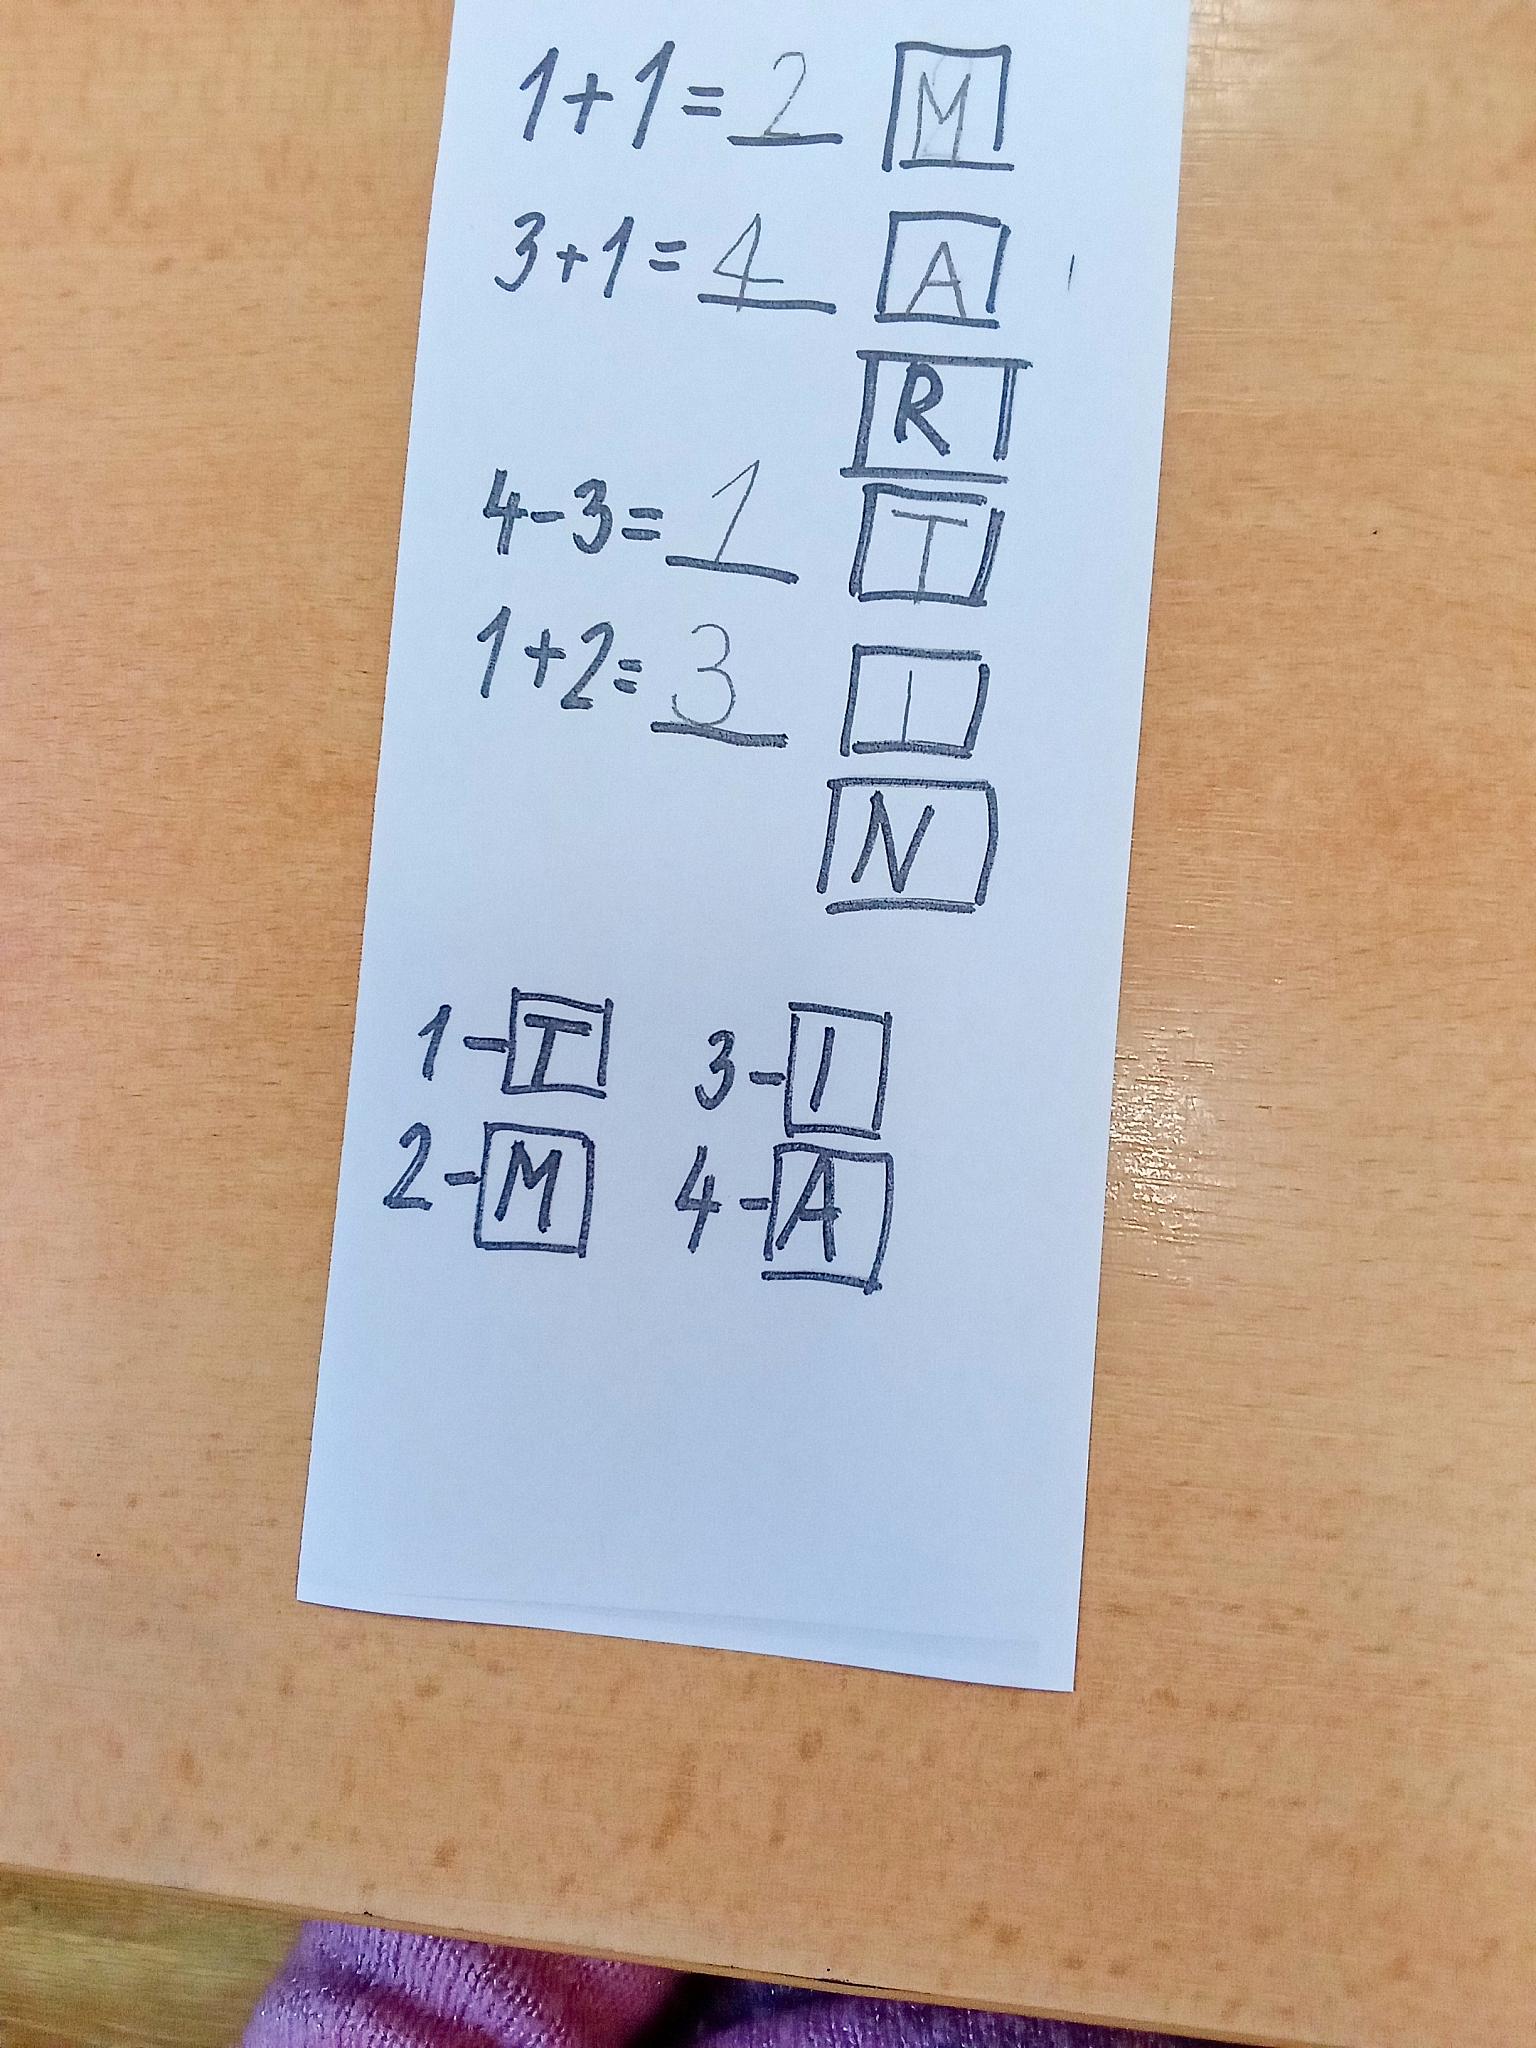 1+1=2 M
3+1=4 A
R
4-3=1 T
1+2=3 I
N
1-T 3-I
2-M 4-A